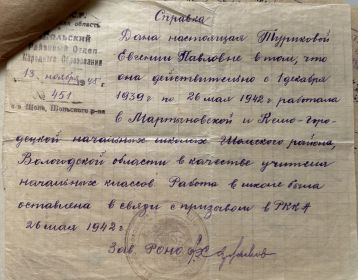 Справка
область
ОЛЬСКИЙ
Районный Отдел
Народного Образования
13 ноября 1945 г.
№ 451
с. Шола, Шольского р-на
Дана настоящая Туриковой
Евгении Павловне в том, что
она действительно с 1 декабря
1939 г по 26 мая 1942 г работала
в Мартыновской и Кемо-Горо-
децкой начальных школах Шольского района,
Вологодской области в качестве учителя
начальных классов. Работа в школе была
оставлена в связи с призывом в РККА
26 мая 1942 г.
Зав. РОНО